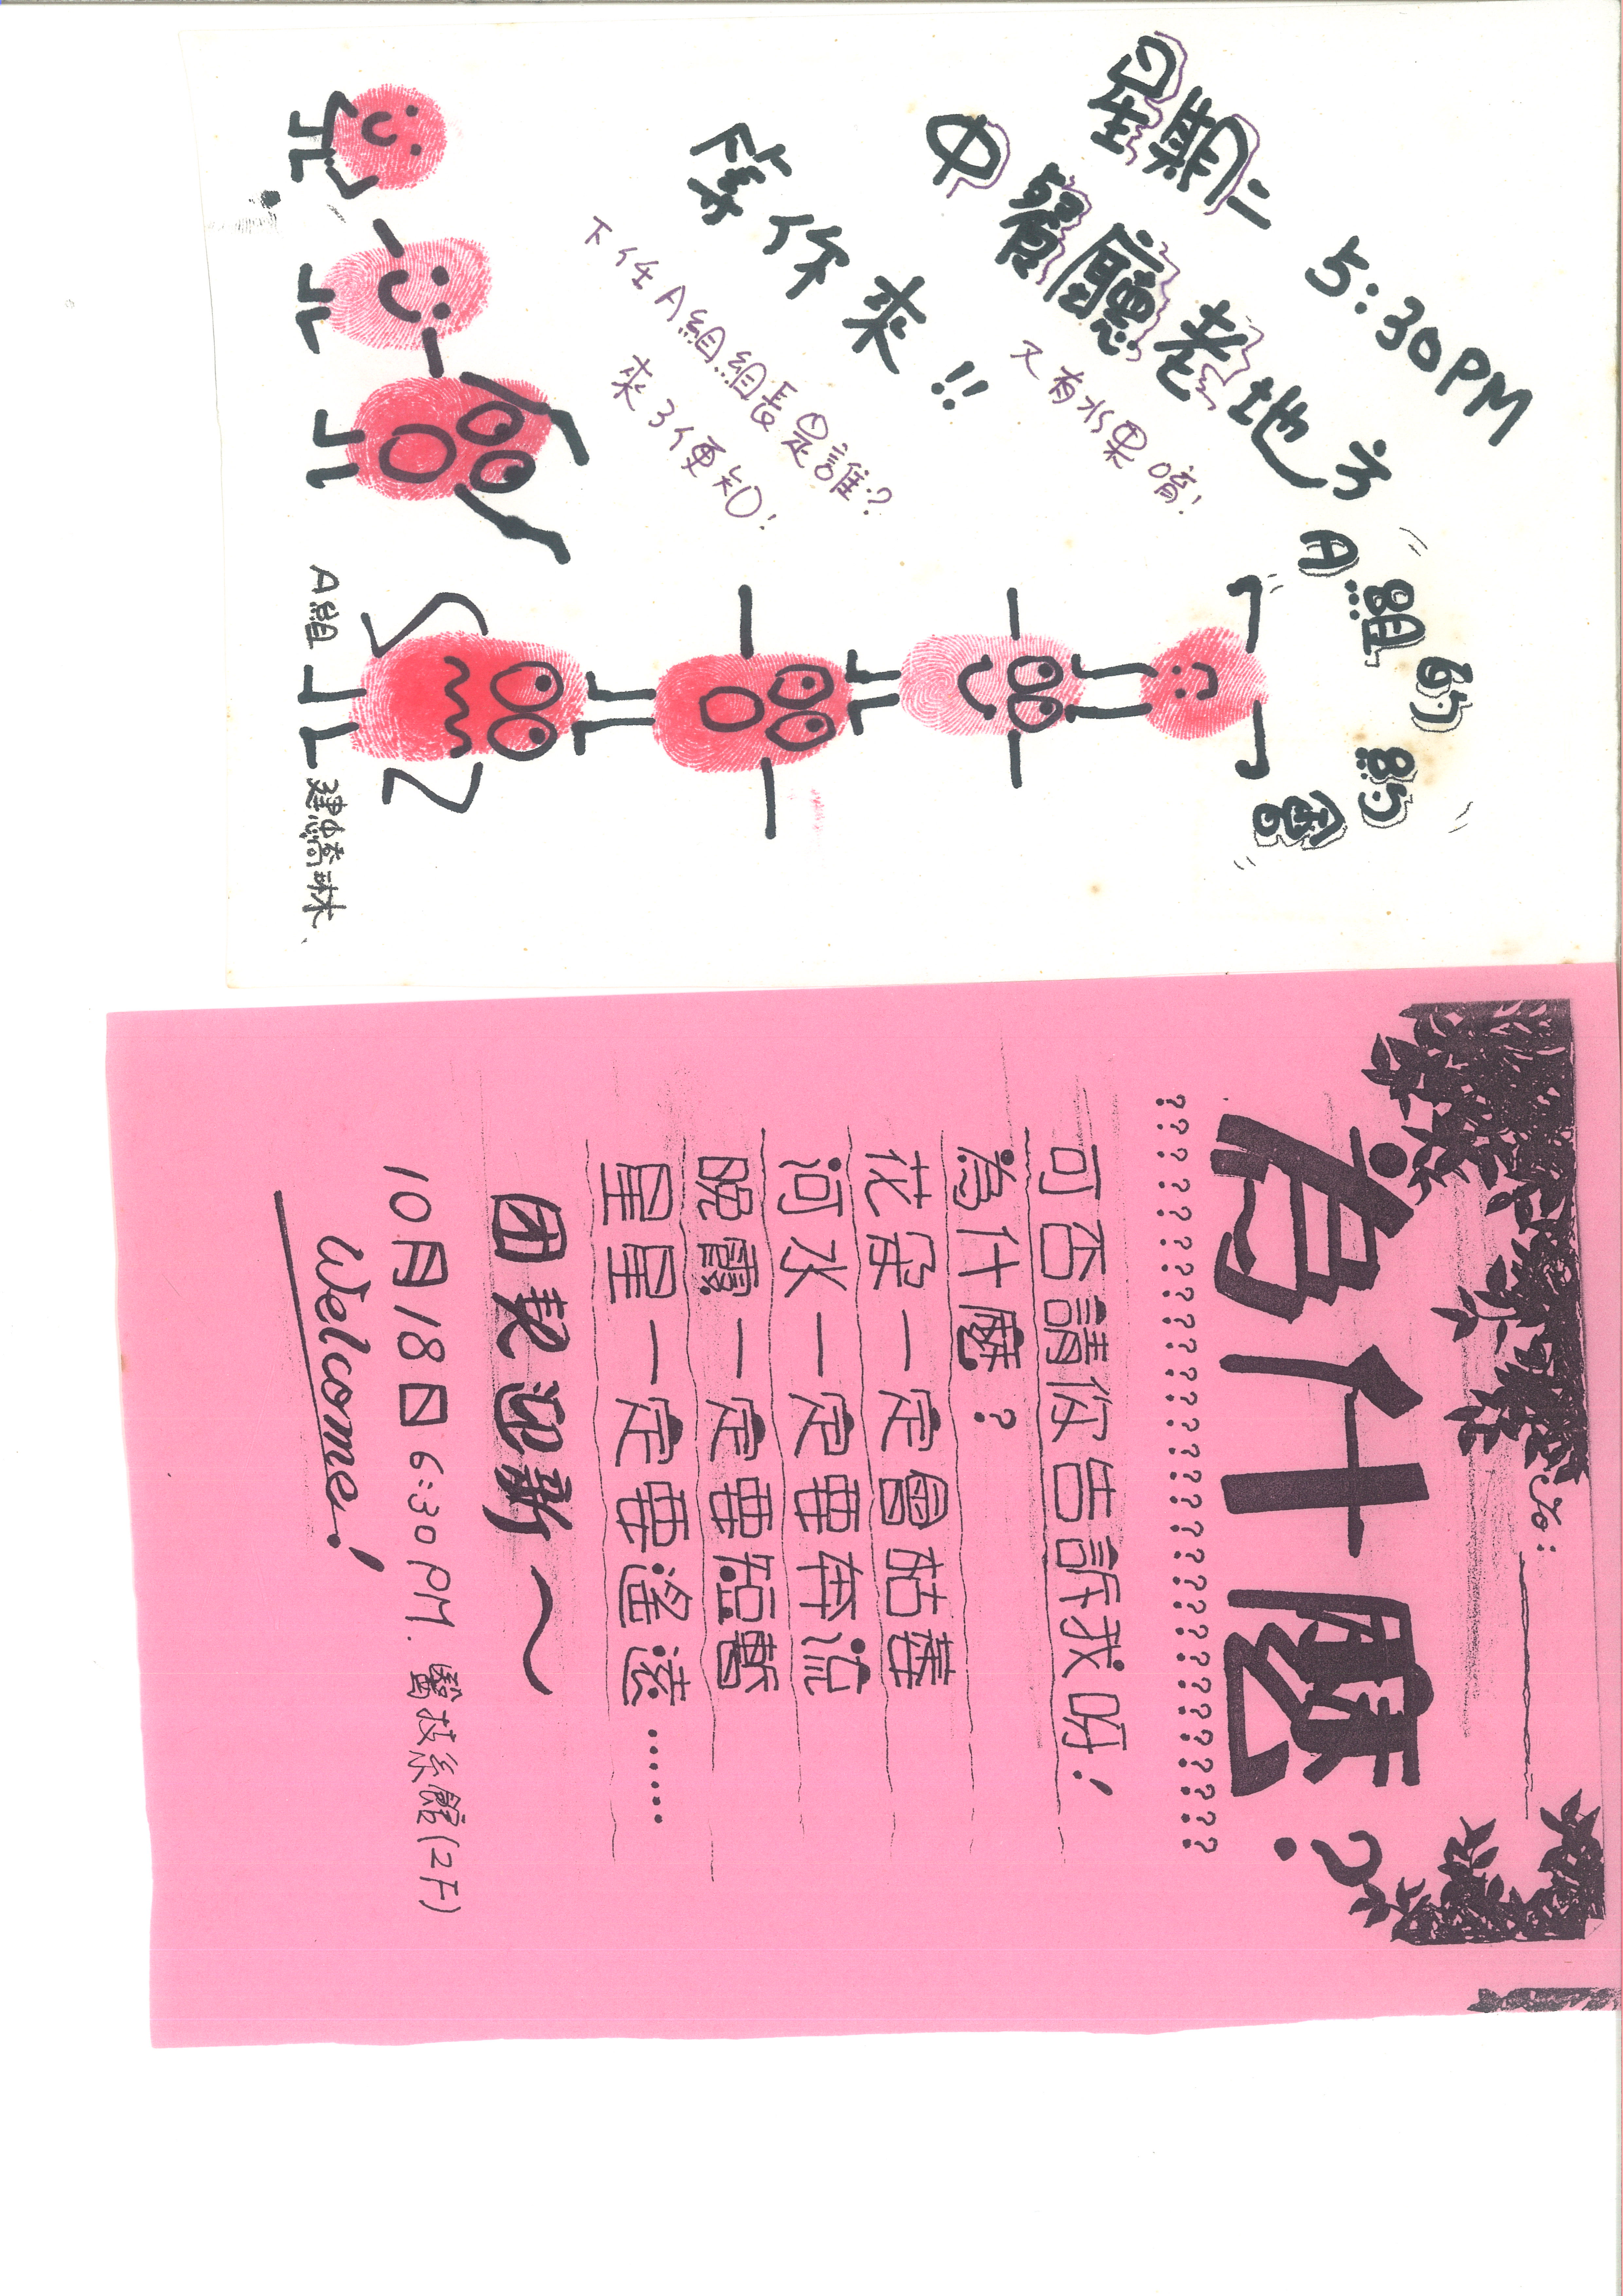 星期二 5:30PM
中餐廳老地方
又有水果唷!
等你來!!
下任A組組長是誰?
來了便知!
A組的
A組
To:
為什麼?
可否請你告訴我呀!
為什麼?
花朵一定會枯萎
河水一定要奔流
晚霞一定要短暫
星星一定要遙遠……
团契迎新～
10月18日 6:30PM. 醫技系館(2F)
Welcome!